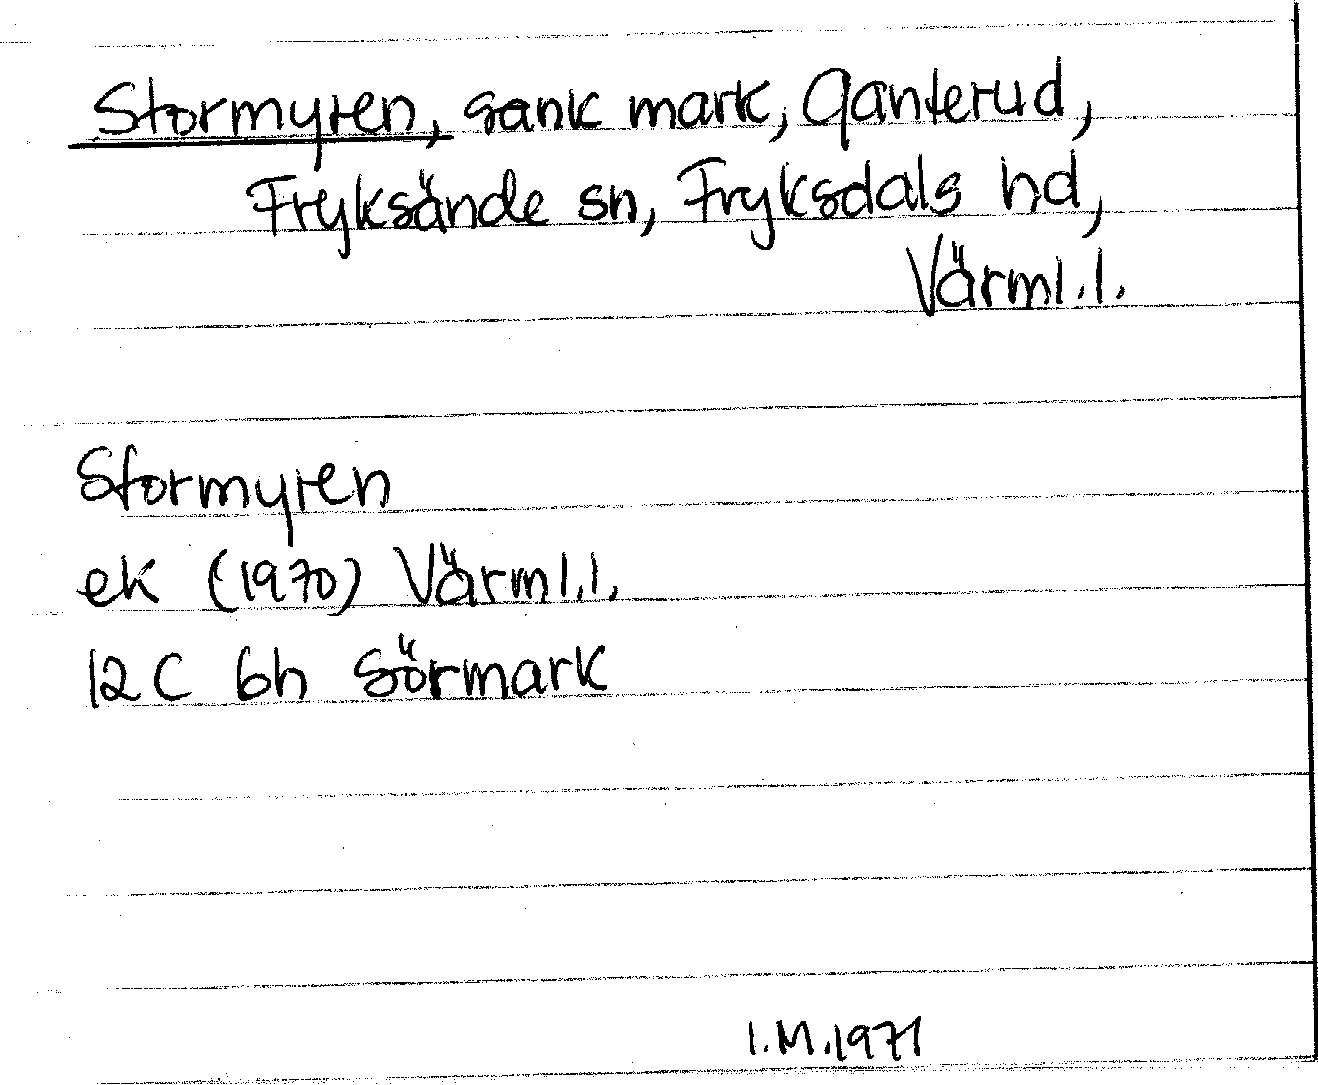 Stormyren, sank mark, Qanterud,
Fryksände sn, Fryksdals hd,
Värml.l.
Stormyren
ek (1970) Värml.l.
12 C 6h Sörmark
I.M.1971